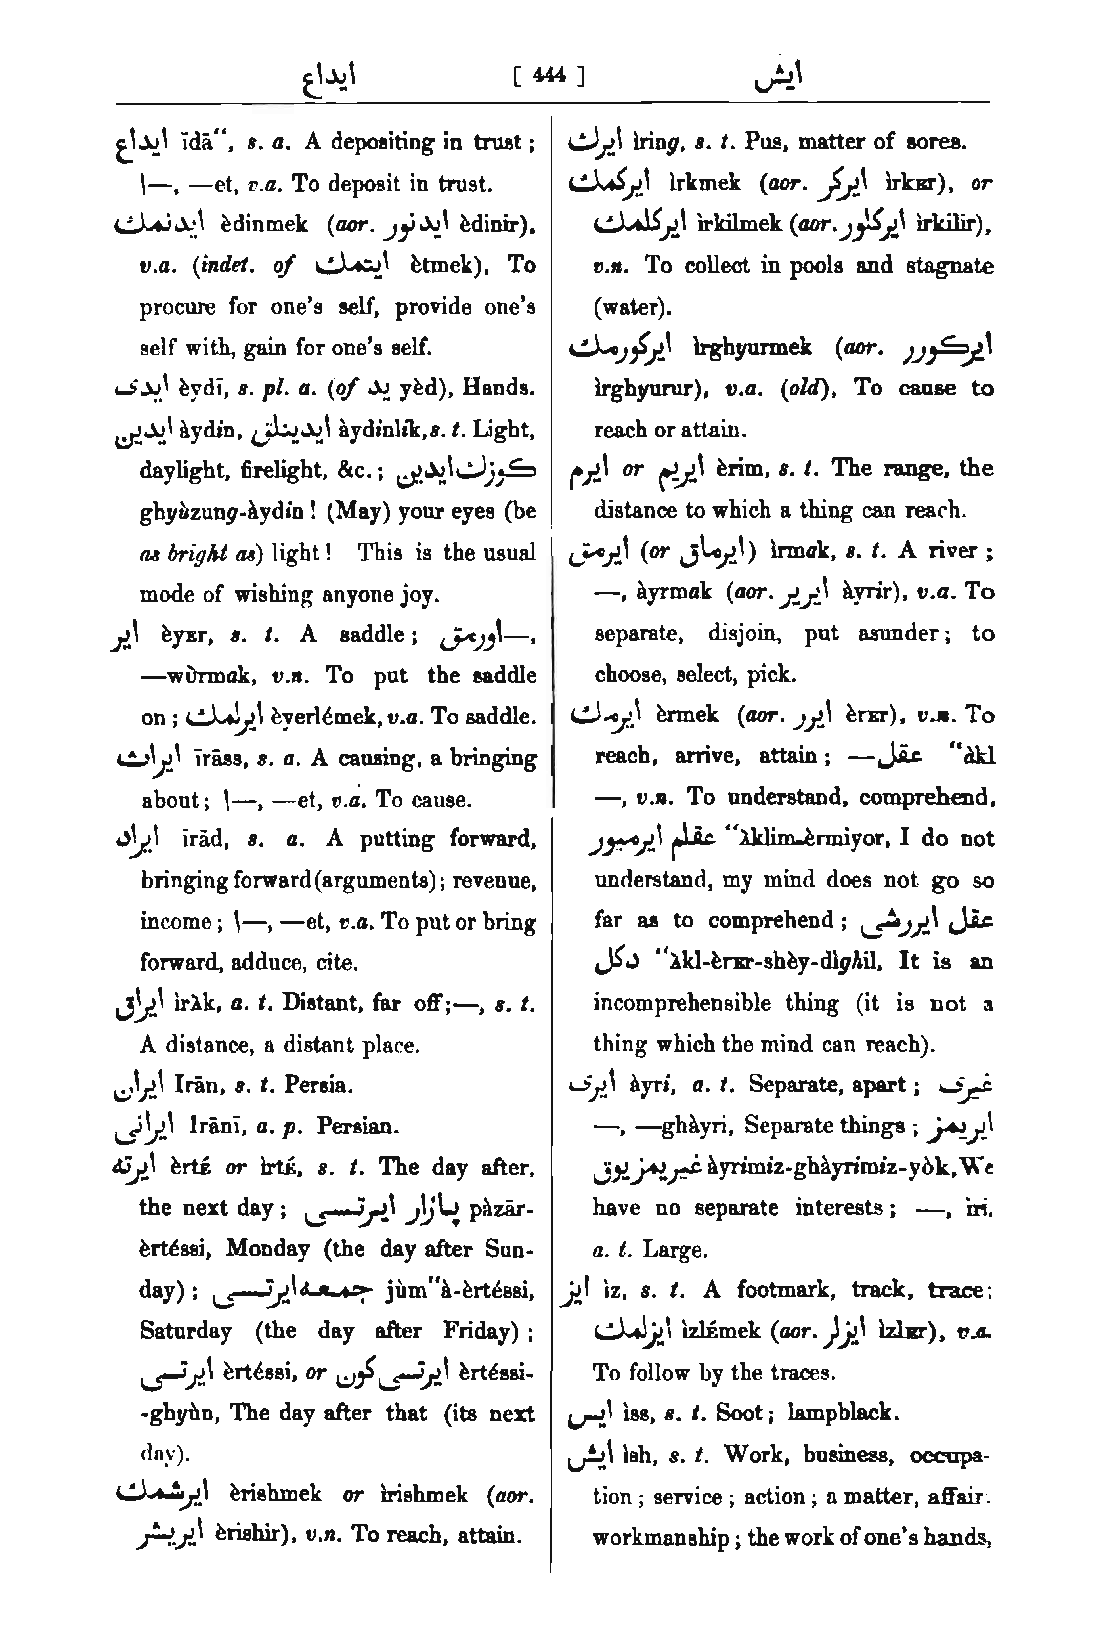 ايداع [ 444 ] ايش
ايداع īdā“, s. a. A depositing in trust ;
\—, —et, v.a. To deposit in trust.
ايدنمك èdinmek (aor. ايدنور èdinir),
v.a. (indet. of ايتمك ètmek), To
procure for one's self, provide one's
self with, gain for one's self.
ايدى èydī, s. pl. a. (of يد yèd), Hands.
ايدين àydin, ايدينلق àydinlik, s. t. Light,
daylight, firelight, &c. ; كوزك ايدين
ghyùzung-àydin ! (May) your eyes (be
as bright as) light ! This is the usual
mode of wishing anyone joy.
اير èyᴇr, s. t. A saddle ; —اورمق,
—wùrmak, v.n. To put the saddle
on ; ايرلمك èyerlémek, v.a. To saddle.
ايراث īrāss, s. a. A causing, a bringing
about ; \—, —et, v.a. To cause.
ايراد īrād, s. a. A putting forward,
bringing forward (arguments) ; revenue,
income ; \—, —et, v.a. To put or bring
forward, adduce, cite.
ايراق ìrλk, a. t. Distant, far off ;—, s. t.
A distance, a distant place.
ايران Irān, s. t. Persia.
ايرانى Irānī, a. p. Persian.
ايرته èrtᴇ́ or ìrtᴇ́, s. t. The day after,
the next day ; پازار ايرتسى pàzār-
èrtéssi, Monday (the day after Sun-
day) ; جمعه ايرتسى jùm“à-èrtéssi,
Saturday (the day after Friday) ;
ايرتسى èrtéssi, or ايرتسى كون èrtéssi-
-ghyùn, The day after that (its next
day).
ايرشمك èrishmek or ìrishmek (aor.
ايريشر èrishir), v.n. To reach, attain.
ايرك ìring, s. t. Pus, matter of sores.
ايركمك ìrkmek (aor. ايركر ìrkᴇr), or
ايركلمك ìrkilmek (aor. ايركلور ìrkilir),
v.n. To collect in pools and stagnate
(water).
ايركورمك ìrghyurmek (aor. ايركورر
ìrghyurur), v.a. (old), To cause to
reach or attain.
ايرم or ايريم èrim, s. t. The range, the
distance to which a thing can reach.
ايرمق (or ايرماق) ìrmak, s. t. A river ;
—, àyrmak (aor. ايرير àyrir), v.a. To
separate, disjoin, put asunder ; to
choose, select, pick.
ايرمك èrmek (aor. ايرر èrᴇr), v.n. To
reach, arrive, attain ; —عقل “àkl
—, v.n. To understand, comprehend,
عقلم ايرميور “λklim-èrmiyor, I do not
understand, my mind does not go so
far as to comprehend ; عقل ايررشى
دكل “λkl-èrᴇr-shèy-dìghil, It is an
incomprehensible thing (it is not a
thing which the mind can reach).
ايرى àyri, a. t. Separate, apart ; غيرى
—, —ghàyri, Separate things ; ايريمز
غيريمز يوق àyrimiz-ghàyrimiz-yòk, We
have no separate interests ; —, ìri,
a. t. Large.
ايز ìz, s. t. A footmark, track, trace ;
ايزلمك ìzlᴇ́mek (aor. ايزلر ìzlᴇr), v.a.
To follow by the traces.
ايس ìss, s. t. Soot ; lampblack.
ايش ìsh, s. t. Work, business, occupa-
tion ; service ; action ; a matter, affair.
workmanship ; the work of one's hands,